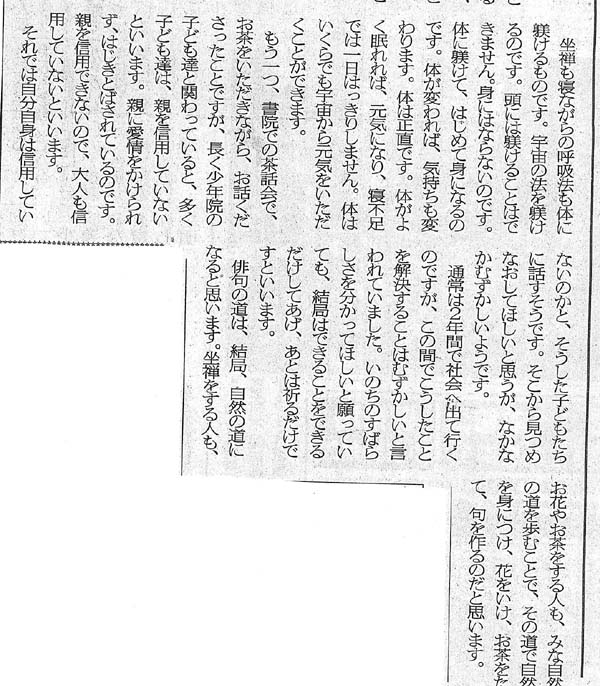 坐禅も寝ながらの呼吸法も体に
躾けるものです。宇宙の法を躾け
るのです。頭には躾けることはで
きません。身にはならないのです。
体に躾けて、はじめて身になるの
です。体が変われば、気持ちも変
わります。体は正直です。体がよ
く眠れれば、元気になり、寝不足
では一日はっきりしません。体は
いくらでも宇宙から元気をいただ
くことができます。
もう一つ、書院での茶話会で、
お茶をいただきながら、お話くだ
さったことですが、長く少年院の
子ども達と関わっていると、多く
子ども達は、親を信用していない
といいます。親に愛情をかけられ
ず、はじきとばされているのです。
親を信用できないので、大人も信
用していないといいます。
それでは自分自身は信用してい
ないのかと、そうした子どもたち
に話すそうです。そこから見つめ
なおしてほしいと思うが、なかな
かむずかしいようです。
通常は2年間で社会へ出て行く
のですが、この間でこうしたこと
を解決することはむずかしいと言
われていました。いのちのすばら
しさを分かってほしいと願ってい
ても、結局はできることをできる
だけしてあげ、あとは祈るだけで
すといいます。
俳句の道は、結局、自然の道に
なると思います。坐禅をする人も、
お花やお茶をする人も、みな自然
の道を歩むことで、その道で自然
を身につけ、花をいけ、お茶をた
て、句を作るのだと思います。